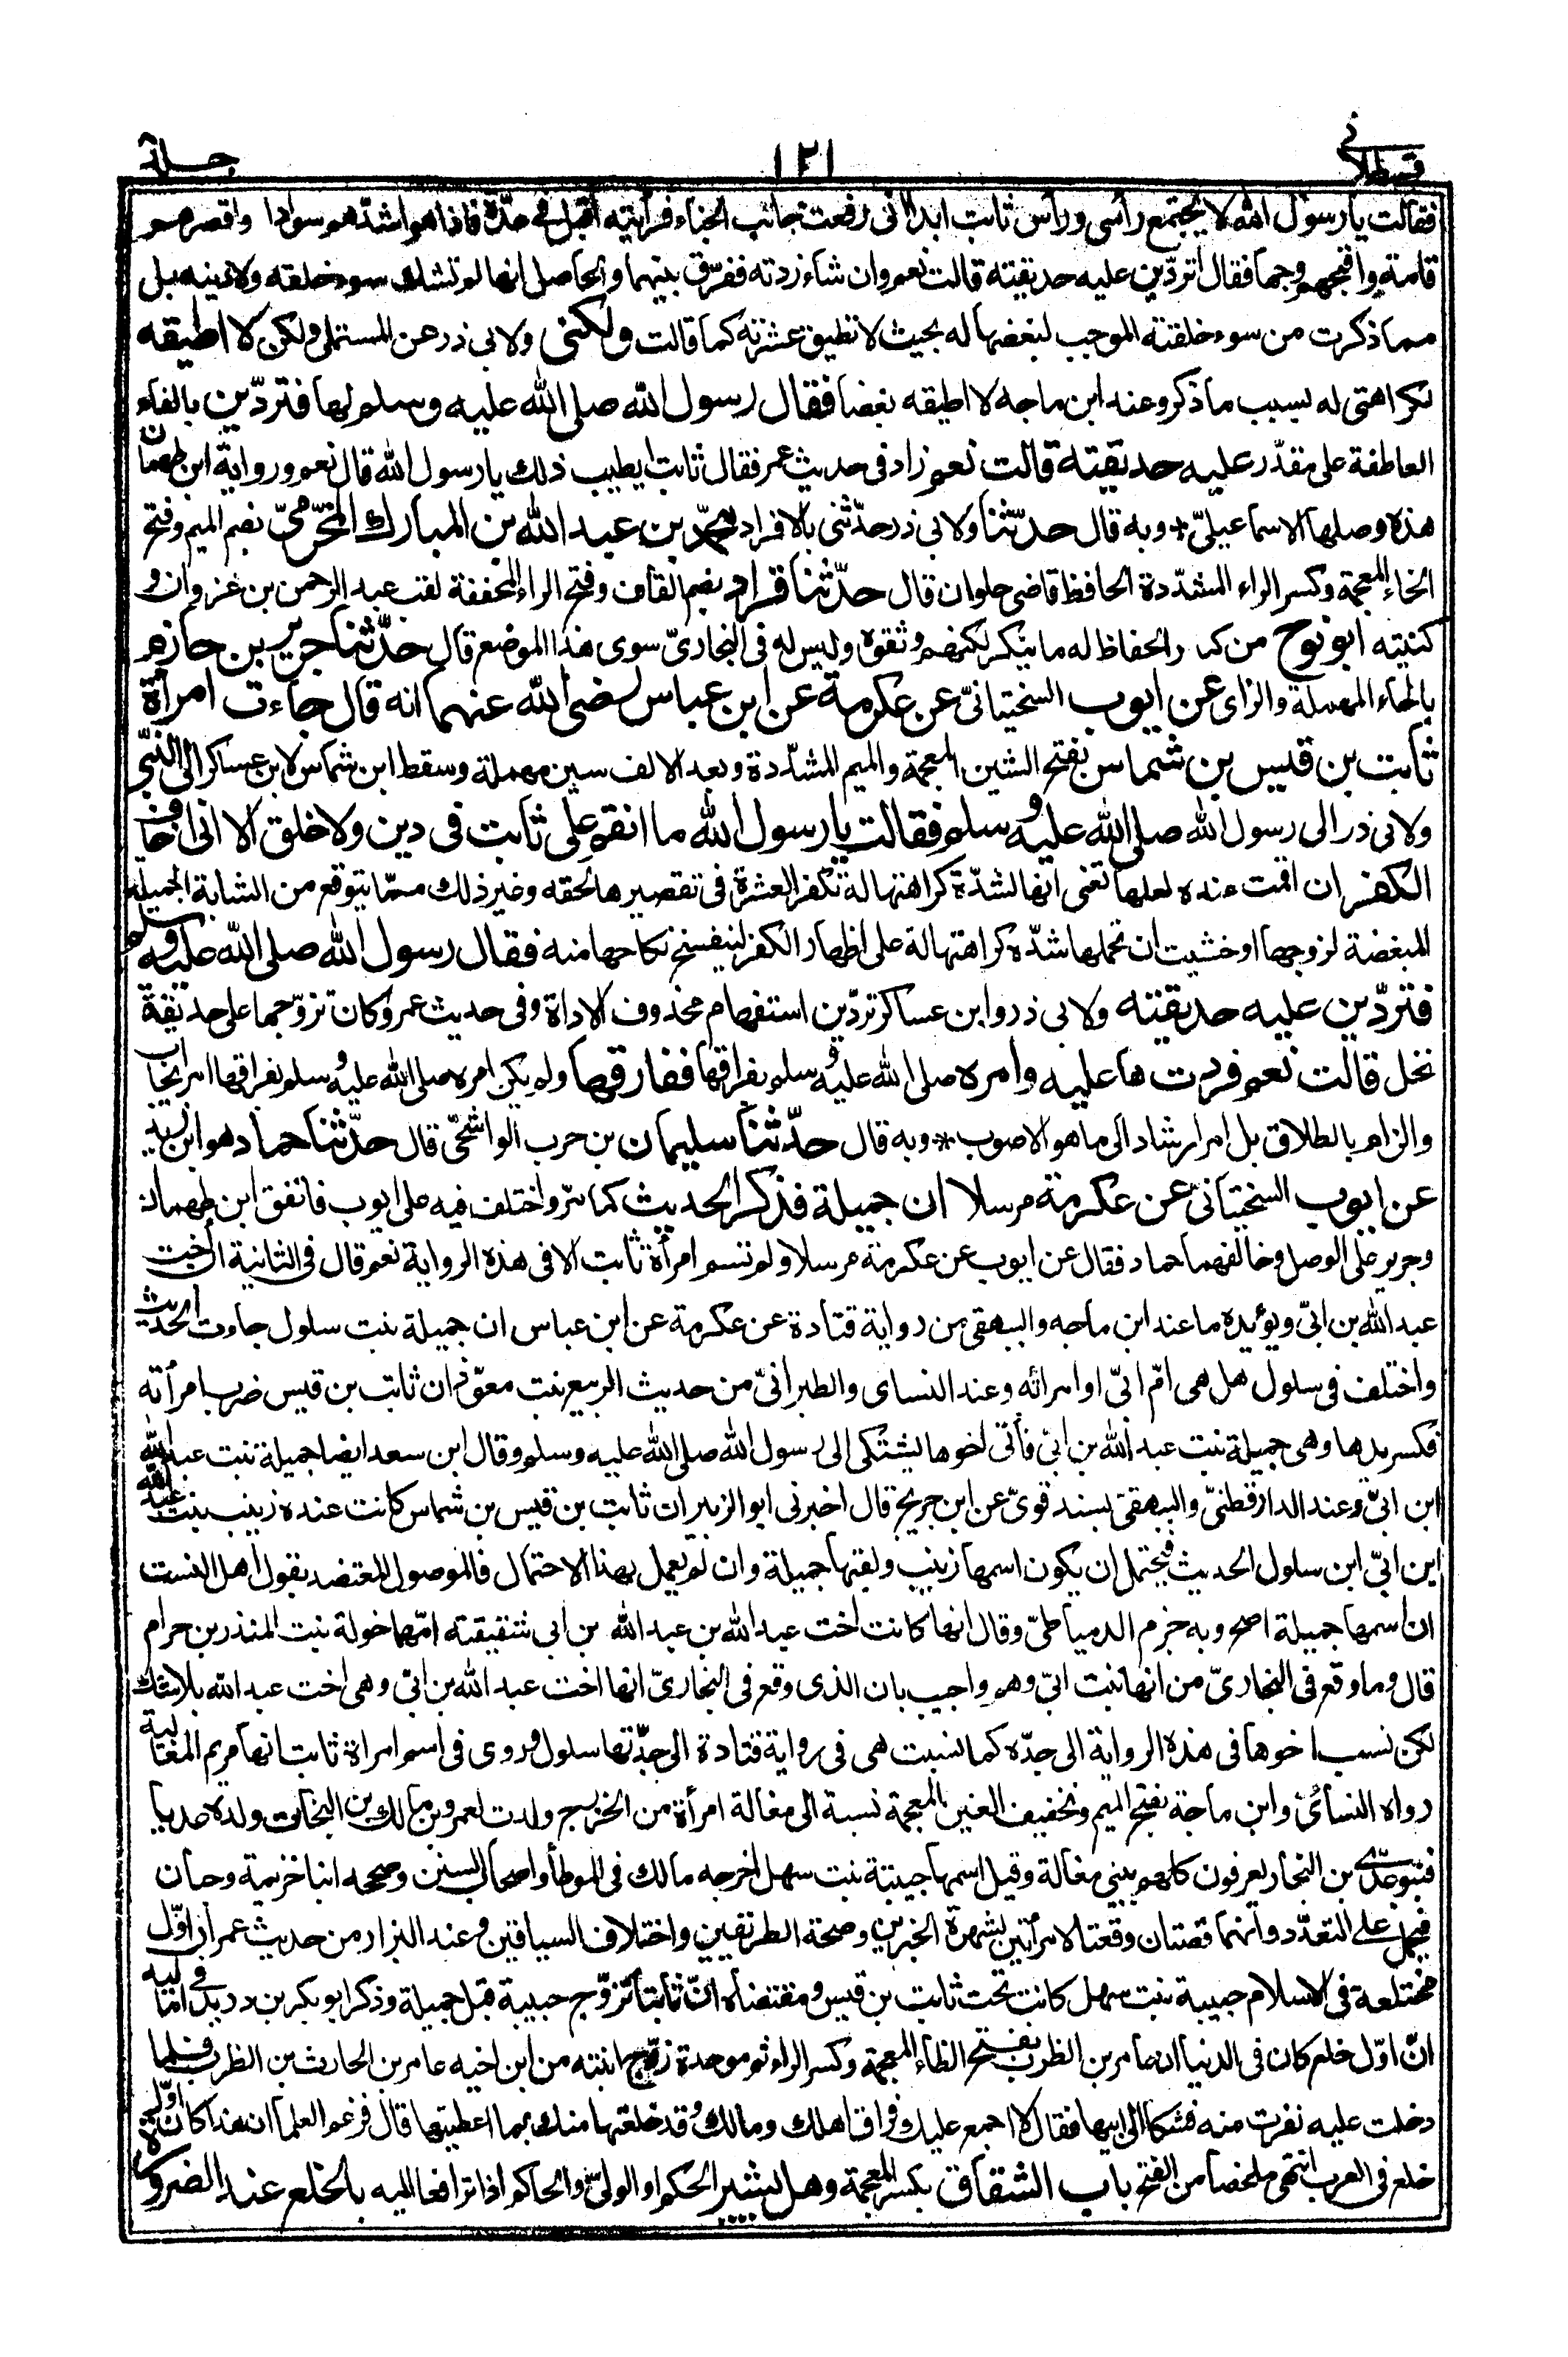 قسطلاني ١٢١ جلد
فقالت يا رسول الله لا يجتمع رأسى ورأس ثابت ابدا انى رفعت جانب الخباء فرأيته أقبل فى عدّة فاذا هو اشدّهم سوادا واقصرهم
قامة واقبحهم وجها فقال أتردّين عليه حديقته قالت نعم وان شاء زدته ففرّق بينهما والحاصل انها لم تشك سوء خلقه ولا دينه بل
مما ذكرت من سوء خلقته الموجب لبغضها له بحيث لا تطيق عشرته كما قالت ولكنى ولابى ذر عن المستملى ولكن لا اطيقه
لكراهتى له بسبب ما ذكر وعند ابن ماجه لا اطيقه بغضا فقال رسول الله صلى الله عليه وسلم لها فتردّين بالفاء
العاطفة على مقدّر عليه حديقته قالت نعم زاد فى حديث عمر فقال ثابت ايطيب ذلك يا رسول الله قال نعم ورواية ابن طهمان
هذه وصلها الاسماعيلىّ * وبه قال حدّثنا ولابى ذر حدّثنى بالافراد محمد بن عبد الله بن المبارك المخرّمىّ بضم الميم وفتح
الخاء المعجمة وكسر الراء المشدّدة الحافظ قاضى حلوان قال حدّثنا قراد بضم القاف وفتح الراء المخففة لقب عبد الرحمن بن غزوان و
كنيته ابو نوح من كبار الحفاظ له ما ينكر لكنهم وثقوه وليس له فى البخارىّ سوى هذا الموضع قال حدّثنا جرير بن حازم
بالحاء المهملة والزاى عن ايوب السختيانىّ عن عكرمة عن ابن عباس رضى الله عنهما انه قال جاءت امرأة
ثابت بن قيس بن شماس بفتح الشين المعجمة والميم المشدّدة وبعد الالف سين مهملة وسقط ابن شماس لابن عساكر الى النبىّ
ولابى ذر الى رسول الله صلى الله عليه وسلم فقالت يا رسول الله ما انقم على ثابت فى دين ولا خلق الا انى اخاف
الكفر ان اقمت عنده لعلها تعنى انها لشدّة كراهتها له تكفر العشرة فى تقصيرها لحقه وغير ذلك ممّا يتوقع من الشابة الجميلة
المبغضة لزوجها او خشيت ان تحملها شدّة كراهتها له على اظهار الكفر لينفسخ نكاحها منه فقال رسول الله صلى الله عليه وسلم
فتردّين عليه حديقته ولابى ذر وابن عساكر تردّين استفهام محذوف الاداة وفى حديث عمر وكان تزوّجها على حديقة
نخل قالت نعم فردت ها عليه وامره صلى الله عليه وسلم بفراقها ففارقها ولم يكن امره صلى الله عليه وسلم بفراقها امر ايجاب
والزام بالطلاق بل امر ارشاد الى ما هو الاصوب * وبه قال حدّثنا سليمان بن حرب الواشحىّ قال حدّثنا حماد هو ابن زيد
عن ايوب السختيانى عن عكرمة مرسلا ان جميلة فذكر الحديث كما مرّ واختلف فيه على ايوب فاتفق ابن طهمان
وجرير على الوصل وخالفهما حماد فقال عن ايوب عن عكرمة مرسلا ولم تسم امرأة ثابت الا فى هذه الرواية نعم قال فى الثانية اخت
عبد الله بن ابىّ ويؤيده ما عند ابن ماجه والبيهقى من رواية قتادة عن عكرمة عن ابن عباس ان جميلة بنت سلول جاءت الحديث
واختلف فى سلول هل هى امّ ابىّ او امرأته وعند النساى والطبرانىّ من حديث الربيع بنت معوّذ ان ثابت بن قيس ضرب امرأته
فكسر يدها وهى جميلة بنت عبد الله بن ابىّ فأتى اخوها يشتكى الى رسول الله صلى الله عليه وسلم وقال ابن سعد ايضا جميلة بنت عبد الله
ابن ابىّ وعند الدارقطنىّ والبيهقى بسند قوىّ عن ابن جريج قال اخبرنى ابو الزبير ان ثابت بن قيس بن شماس كانت عنده زينب بنت عبد الله
ابن ابىّ ابن سلول الحديث فيحتمل ان يكون اسمها زينب ولقبها جميلة وان لم يعمل بهذا الاحتمال فالموصول المعتضد بقول اهل النسب
ان اسمها جميلة اصح وبه جزم الدمياطىّ وقال انها كانت اخت عبد الله بن عبد الله بن ابى شقيقته امّهما خولة بنت المنذر بن حرام
قال وما وقع فى البخارىّ من انها بنت ابىّ وهم واجيب بان الذى وقع فى البخارىّ انها اخت عبد الله بن ابىّ وهى اخت عبد الله بلا شك
لكن نسب اخوها فى هذه الرواية الى جدّه كما نسبت هى فى رواية قتادة الى جدّتها سلول وروى فى اسم امراة ثابت انها مريم المغالية
رواه النسائىّ وابن ماجة بفتح الميم وتخفيف الغين المعجمة نسبة الى مغالة امرأة من الخزرج ولدت لعمرو بن مالك بن النجار ولده عديا
فبنو عدىّ بن النجار يعرفون كلهم ببنى مغالة وقيل اسمها حبيبة بنت سهل اخرجه مالك فى الموطأ واصحاب السنن وصححه ابنا خزيمة وحبان
فيحمل على التعدّد وأنهما قصتان وقعتا لامرأتين لشهرة الخبرين وصحة الطريقين واختلاف السياقين وعند البزار من حديث عمر أن اوّل
مختلعة فى الاسلام حبيبة بنت سهل كانت تحت ثابت بن قيس ومقتضاه انّ ثابتا تزوّج حبيبة قبل جميلة وذكر ابو بكر بن دريد فى اماليه
انّ اوّل خلع كان فى الدنيا ان عامر بن الظرب بفتح الظاء المعجمة وكسر الراء ثم موحدة زوّج ابنته من ابن اخيه عامر بن الحارث بن الظرب فلما
دخلت عليه نفرت منه فشكا الى ابيها فقال لا اجمع عليك فراق اهلك ومالك وقد خلعتها منك بما اعطيتها قال فزعم العلماء ان هذا كان اوّل
خلع فى العرب انتهى ملخصا من الفتح باب الشقاق بكسر المعجمة وهل يشير الحكم او الولىّ والحاكم اذا ترافعا اليه بالخلع عند الضرورة